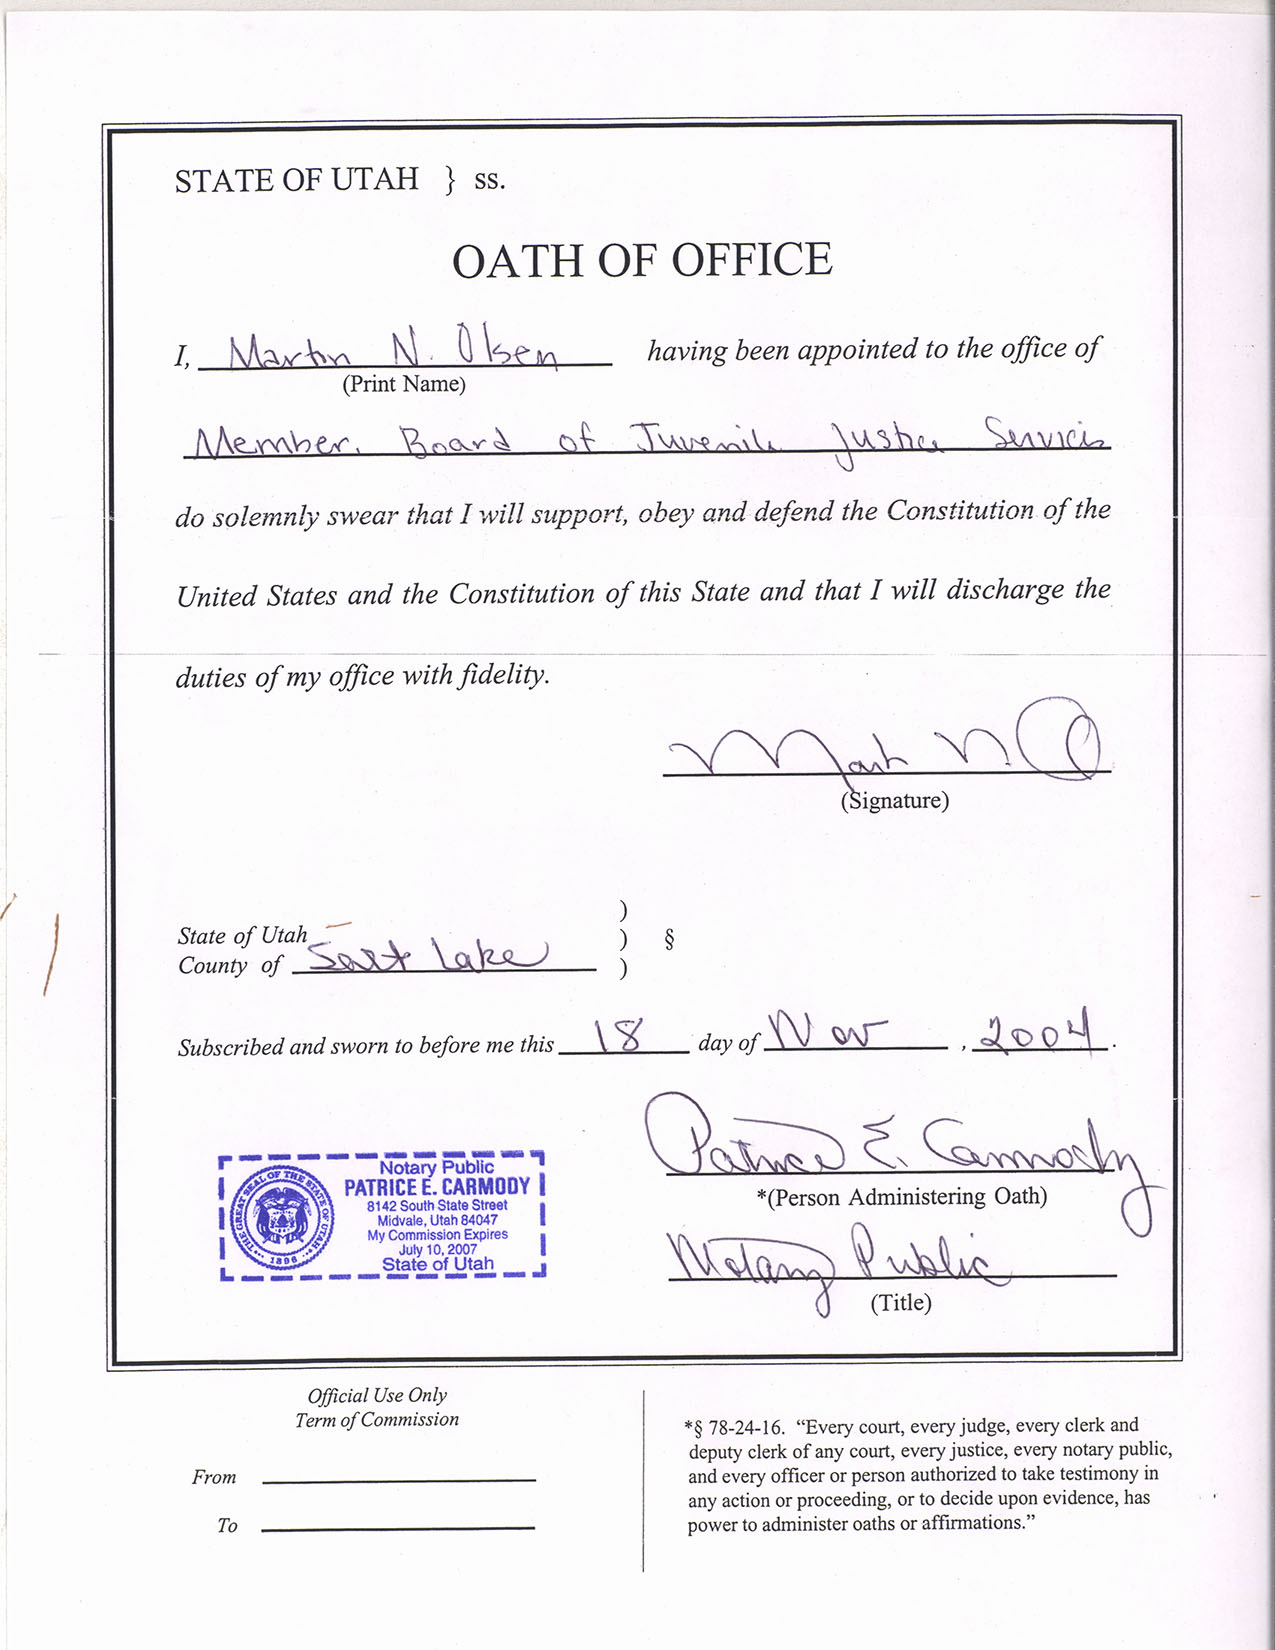 STATE OF UTAH } ss.
OATH OF OFFICE
I, Martin N. Olsen having been appointed to the office of
(Print Name)
Member, Board of Juvenile Justice Services
do solemnly swear that I will support, obey and defend the Constitution of the
United States and the Constitution of this State and that I will discharge the
duties of my office with fidelity.
(Signature)
)
State of Utah ) §
County of Salt Lake )
Subscribed and sworn to before me this 18 day of Nov , 2004.
Patrice E. Carmody
*(Person Administering Oath)
Notary Public
(Title)
THE GREAT SEAL OF THE STATE OF UTAH
1896
Notary Public
PATRICE E. CARMODY
8142 South State Street
Midvale, Utah 84047
My Commission Expires
July 10, 2007
State of Utah
Official Use Only
Term of Commission
From
To
*§ 78-24-16. “Every court, every judge, every clerk and
deputy clerk of any court, every justice, every notary public,
and every officer or person authorized to take testimony in
any action or proceeding, or to decide upon evidence, has
power to administer oaths or affirmations.”